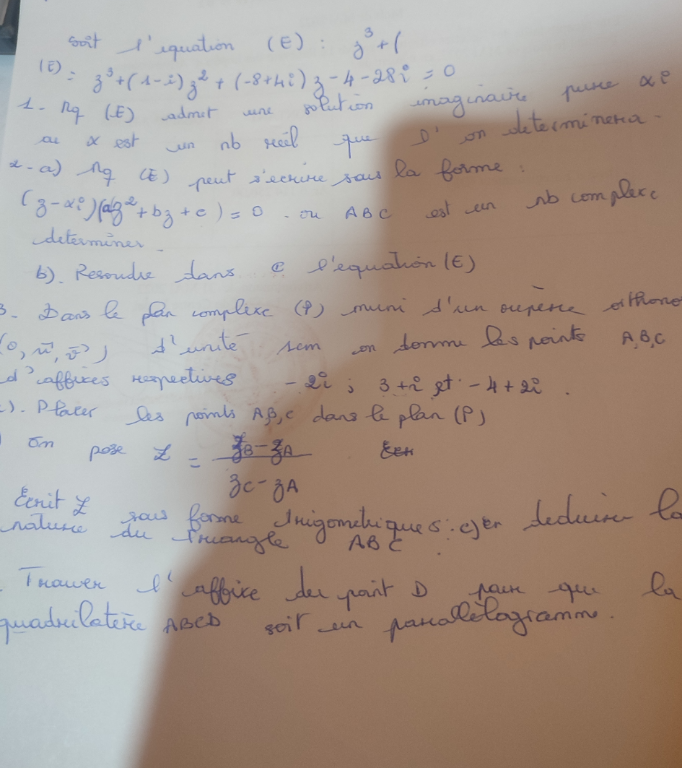 soit l'equation (E) : z³+(
(E) : z³+(1-i)z²+(-8+4i)z-4-28i = 0
1- Mq (E) admet une solution imaginaire pure αi
ou α est un nb réel que l'on determinera.
2-a) Mq (E) peut s'ecrire sous la forme :
(z-αi)(az²+bz+c) = 0 . ou ABC est un nb complexe
determiner.
b). Resoudre dans ℂ l'equation (E)
3. Dans le plan complexe (P) muni d'un repère orthono
(o, u⃗, v⃗) d'unité 1cm on donne les points A,B,C
d'affixes respectives -2i ; 3+i et -4+2i .
). Placer les points A,B,C dans le plan (P)
) On pose Z = (zB-zA)/(zC-zA)
Ecrit Z sous forme trigometrique c) En deduire la
nature du triangle ABC .
. Trouver l'affixe du point D pour que la
quadrilatère ABCD soit un parallélogramme.